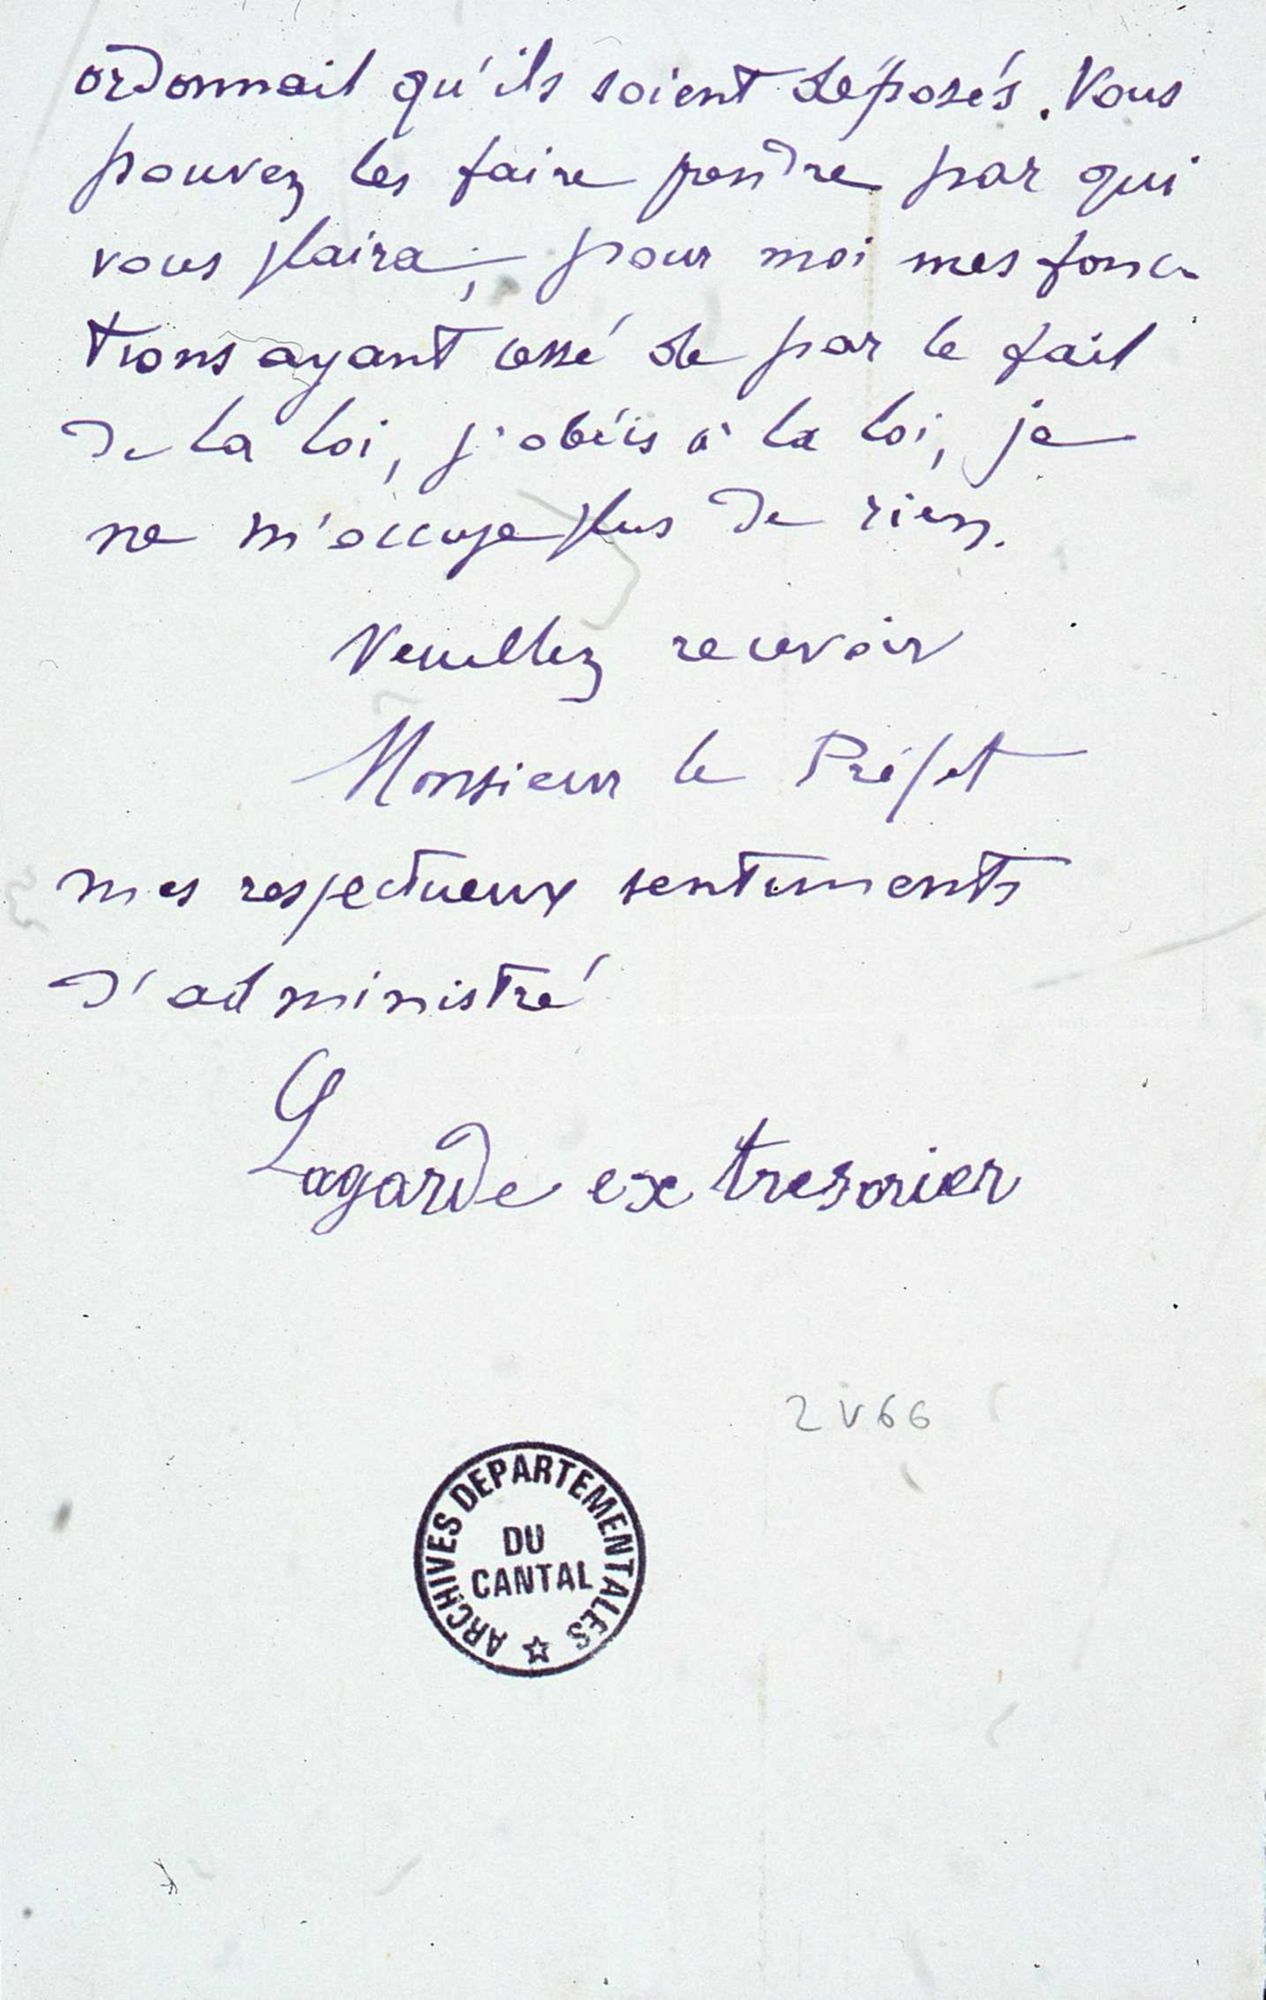 ordonnait qu'ils soient déposés. Vous
pouvez les faire prendre par qui
vous plaira ; pour moi mes fonc-
tions ayant cessé de par le fait
de la loi, j'obéis à la loi, je
ne m'occupe plus de rien.
Veuillez recevoir
Monsieur le Préfet
mes respectueux sentiments
d'administré
Lagarde ex tresorier
2 V 66
ARCHIVES DEPARTEMENTALES
DU
CANTAL